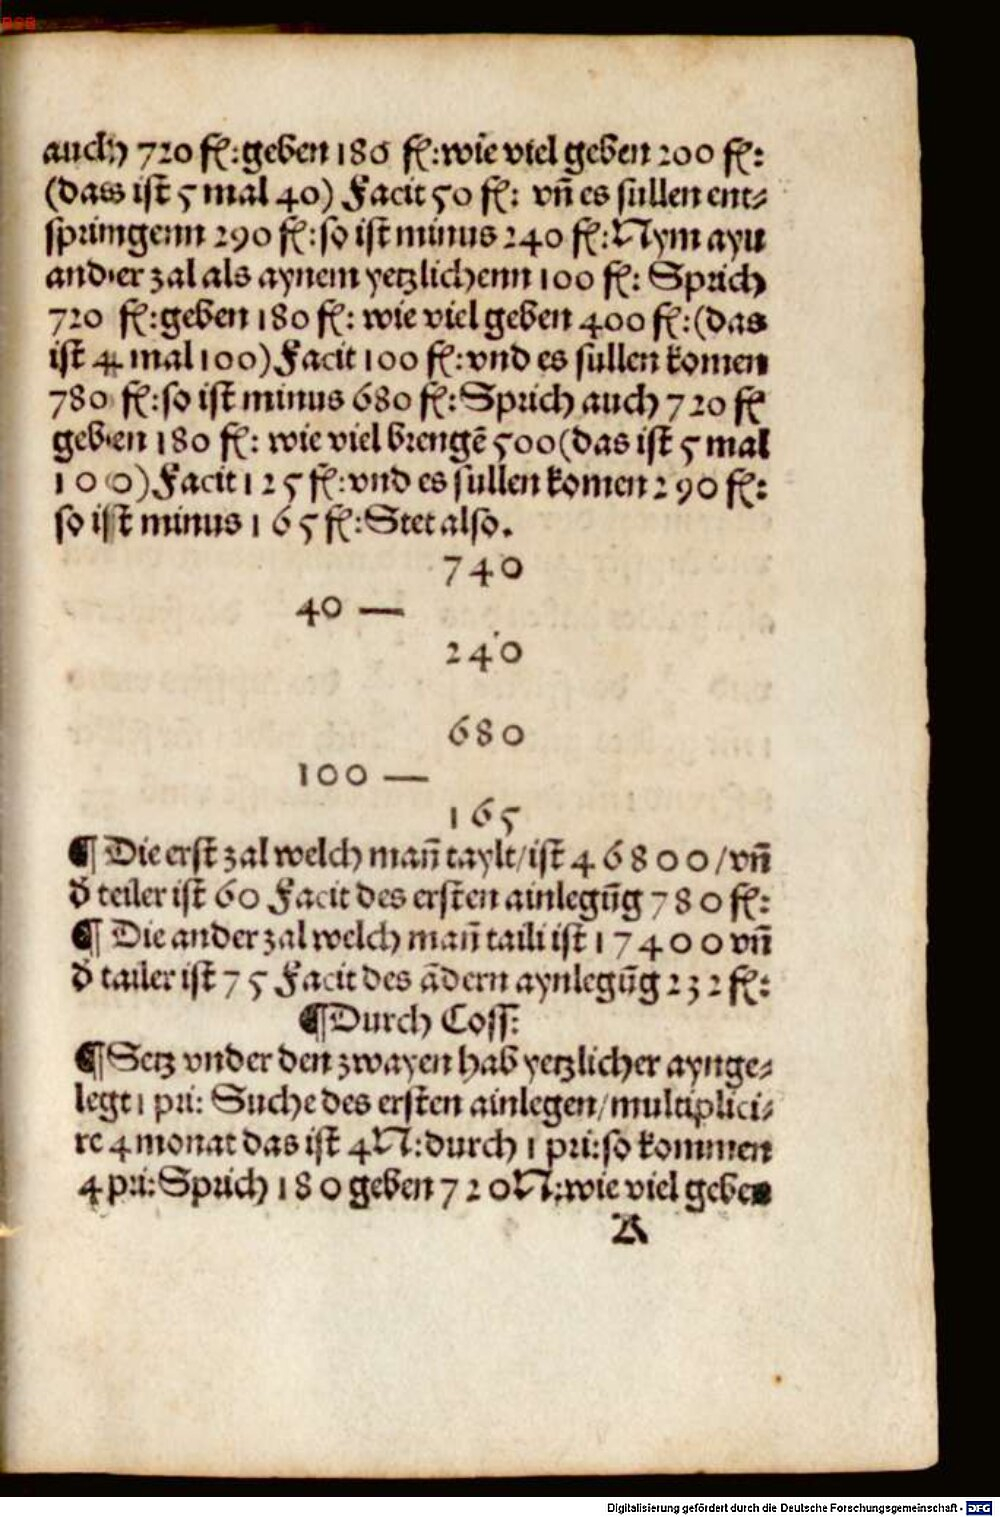 auch 720 fl:geben 180 fl:wie viel geben 200 fl:
(das ist 5 mal 40) Facit 50 fl: vñ es sullen ent⸗
springenn 290 fl:so ist minus 240 fl:Nym ayn
ander zal als aynem yetzlichenn 100 fl: Sprich
720 fl:geben 180 fl: wie viel geben 400 fl:(das
ist 4 mal 100) Facit 100 fl:vnd es sullen komen
780 fl:so ist minus 680 fl:Sprich auch 720 fl
geben 180 fl: wie viel brengẽ 500(das ist 5 mal
100) Facit 125 fl:vnd es sullen komen 290 fl:
so ist minus 165 fl:Stet also.
740
40 —
240
680
100 —
165
¶ Die erst zal welch mañ taylt/ist 46800/vñ
d̄ teiler ist 60 Facit des ersten ainlegũg 780 fl:
¶ Die ander zal welch mañ taili ist 17400 vñ
d̄ tailer ist 75 Facit des ãdern aynlegũg 232 fl:
¶Durch Coss:
¶Setz vnder den zwayen hab yetzlicher aynge⸗
legt 1 pri: Suche des ersten ainlegen/multiplici⸗
re 4 monat das ist 4N:durch 1 pri:so kommen
4 pri:Sprich 180 geben 720N:wie viel geben
A
Digitalisierung gefördert durch die Deutsche Forschungsgemeinschaft - DFG